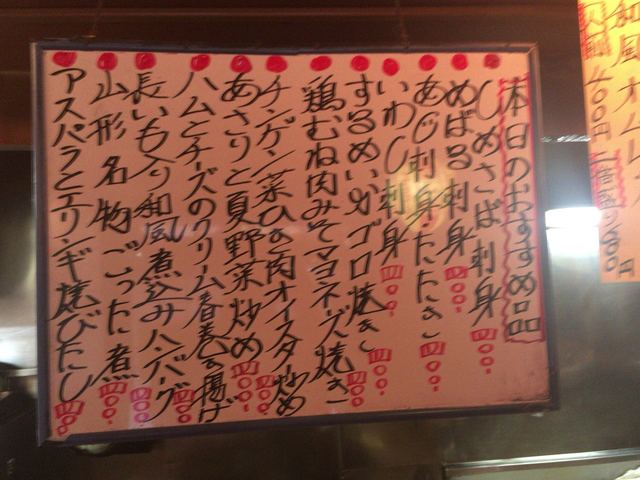 本日のおすすめ品
しめさば刺身 四〇〇.
めばる刺身 四〇〇.
あじ刺身・たたき 四〇〇.
いわし刺身 四〇〇.
するめいかゴロ焼き 四〇〇.
鶏むね肉みそマヨネーズ焼き 四〇〇.
チンゲン菜ひき肉オイスター炒め 四〇〇.
あさりと夏野菜炒め 四〇〇.
ハムとチーズのクリーム春巻き揚げ 四〇〇.
長いも入り和風煮込みハンバーグ 四〇〇.
山形名物ごった煮 四〇〇.
アスパラとエリンギ焼びたし 四〇〇
和風オムレツ
400円